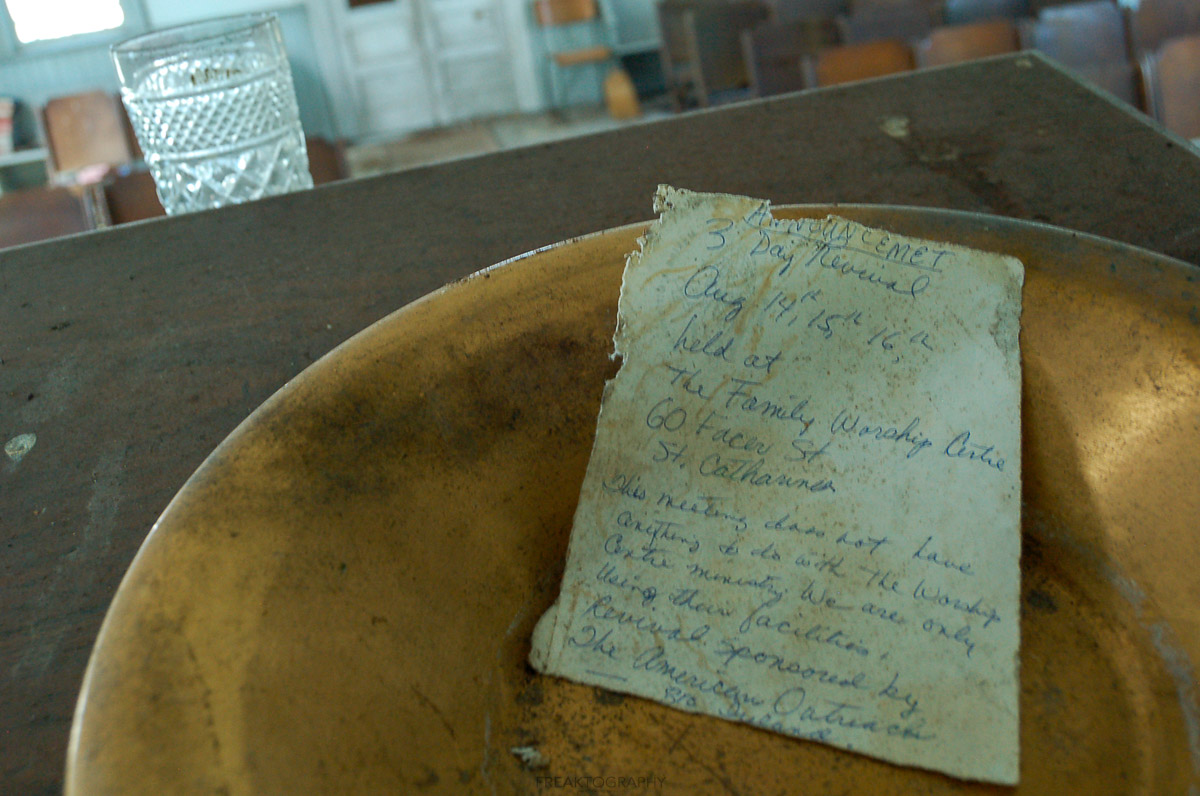 ANNOUNCEMET
3 Day Revival
Aug 14th, 15th 16,th
held at
The Family Worship Centre
60 Facer St
St. Catharines
This meeting does not have
anything to do with The Worship
Centre ministry. We are only
Using their facilities.
Revival sponsored by
The American Outreach
FREAKTOGRAPHY